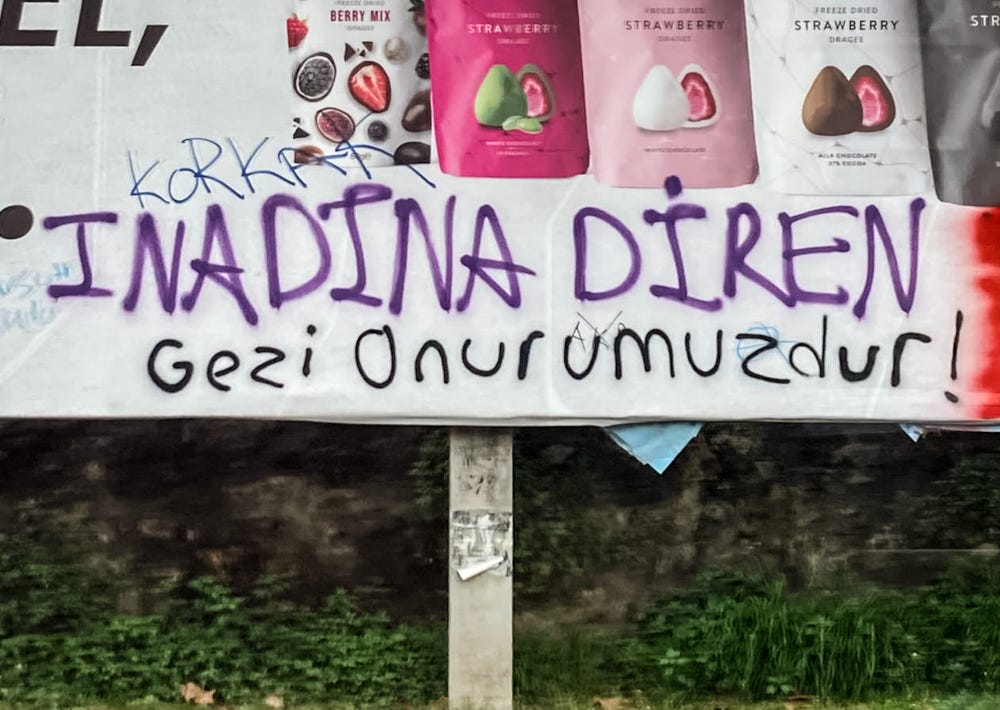 EL,
FREEZE DRIED
BERRY MIX
DRAGEE
FREEZE DRIED
STRAWBERRY
DRAGEE
WHITE CHOCOLATE
FREEZE DRIED
STRAWBERRY
DRAGEE
WHITE CHOCOLATE
FREEZE DRIED
STRAWBERRY
DRAGEE
MILK CHOCOLATE
37% COCOA
STR
INADINA DİREN
Gezi Onurumuzdur!